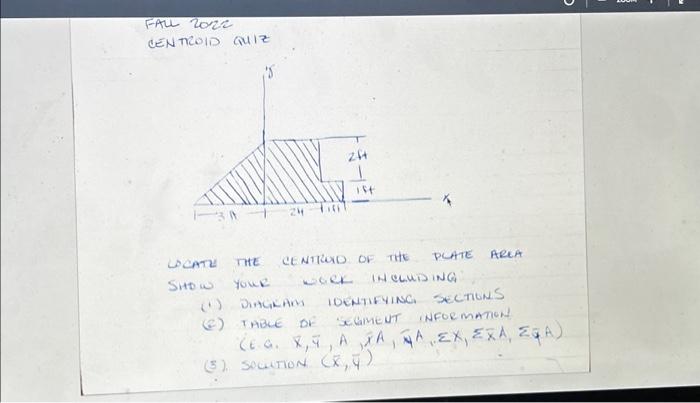 FALL 2022
CENTROID QUIZ
y
2ft
1ft
x
3ft 2ft 1ft
LOCATE THE CENTROID OF THE PLATE AREA
SHOW YOUR WORK INCLUDING:
(1) DIAGRAM IDENTIFYING SECTIONS
(2) TABLE OF SEGMENT INFORMATION
(E.G. x̄, ȳ, A, x̄A, ȳA, ΣX, Σx̄A, ΣȳA)
(3) SOLUTION (x̄, ȳ)